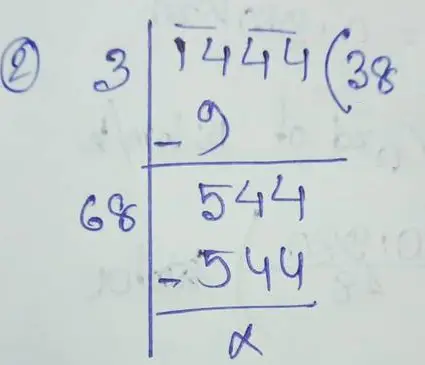 ② 3 1444 ( 38
- 9
68 544
- 544
x